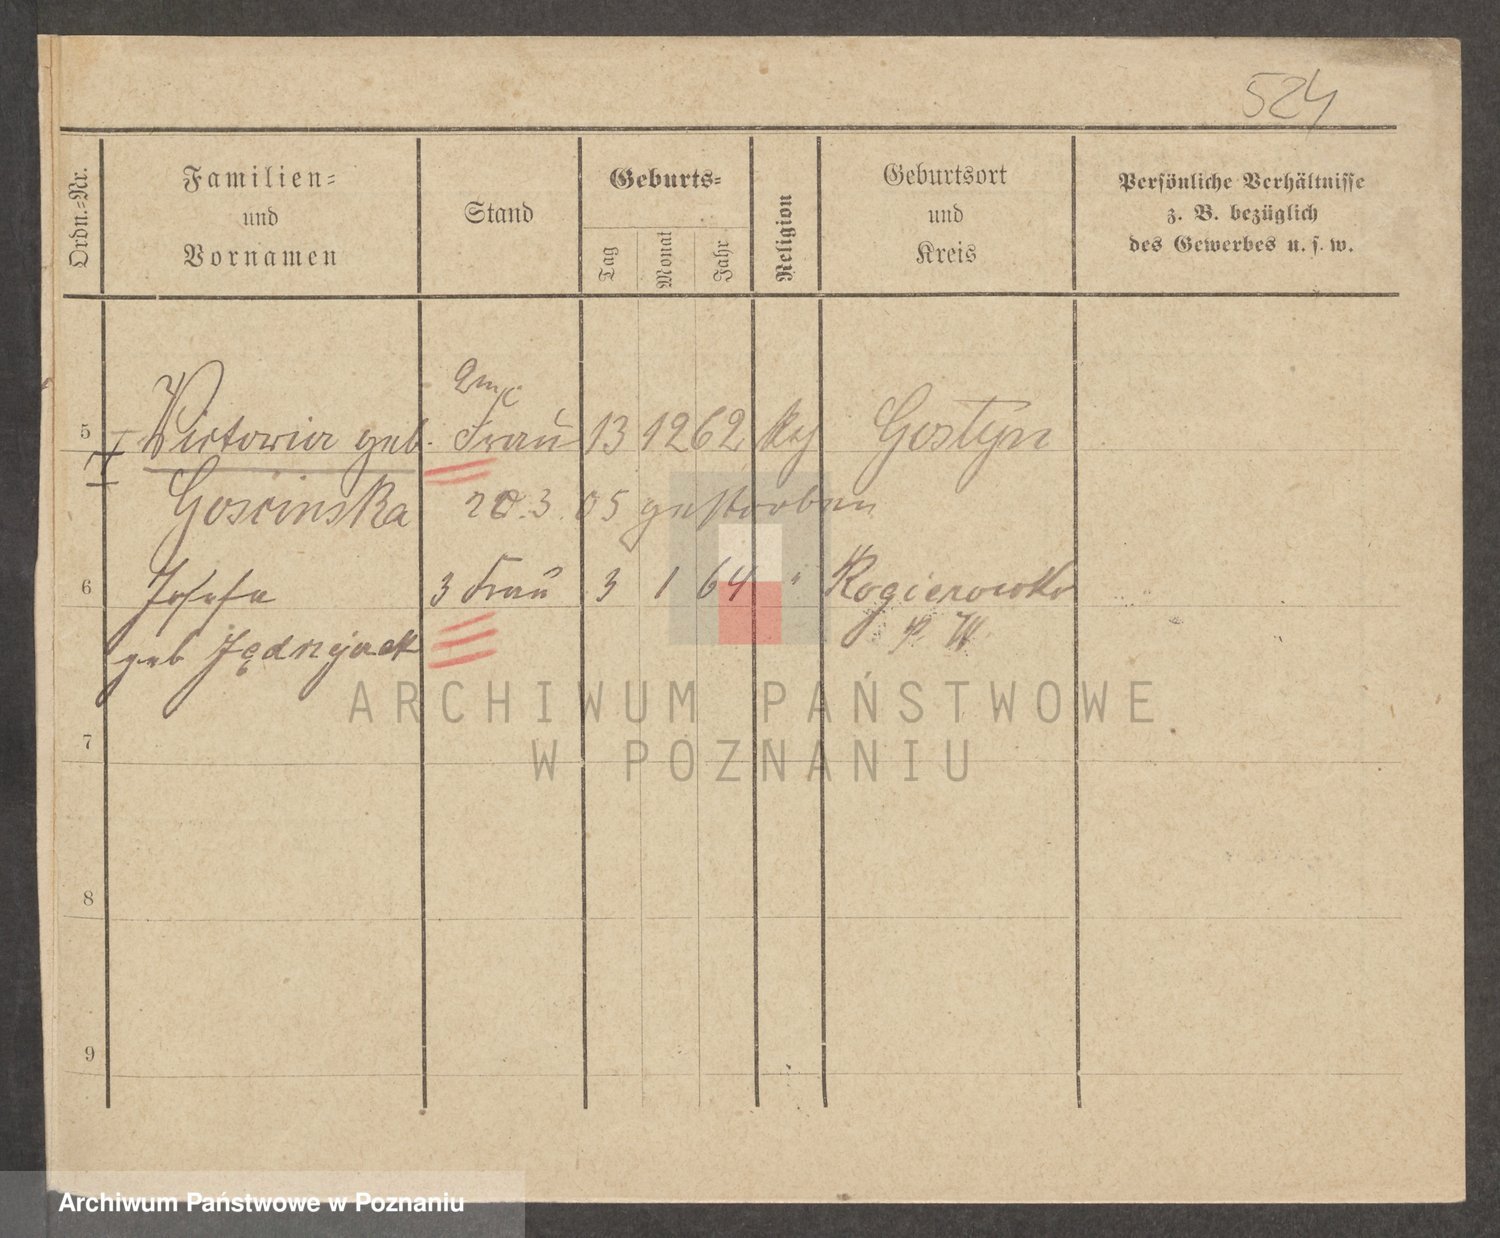 524
Ordn.-Nr.
Familien-
und
Vornamen
Stand
Geburts-
Tag
Monat
Jahr
Religion
Geburtsort
und
Kreis
Persönliche Verhältnisse
z. B. bezüglich
des Gewerbes u. s. w.
5 Victoria geb. Frau 13 12 62 Gostyn
Goscinska 20.3.05 gestorben
6 Josefa 3 Frau 3 1 64 " Rogierowko
geb Jędrzejack p. W
7
8
9
ARCHIWUM PAŃSTWOWE
W POZNANIU
Archiwum Państwowe w Poznaniu